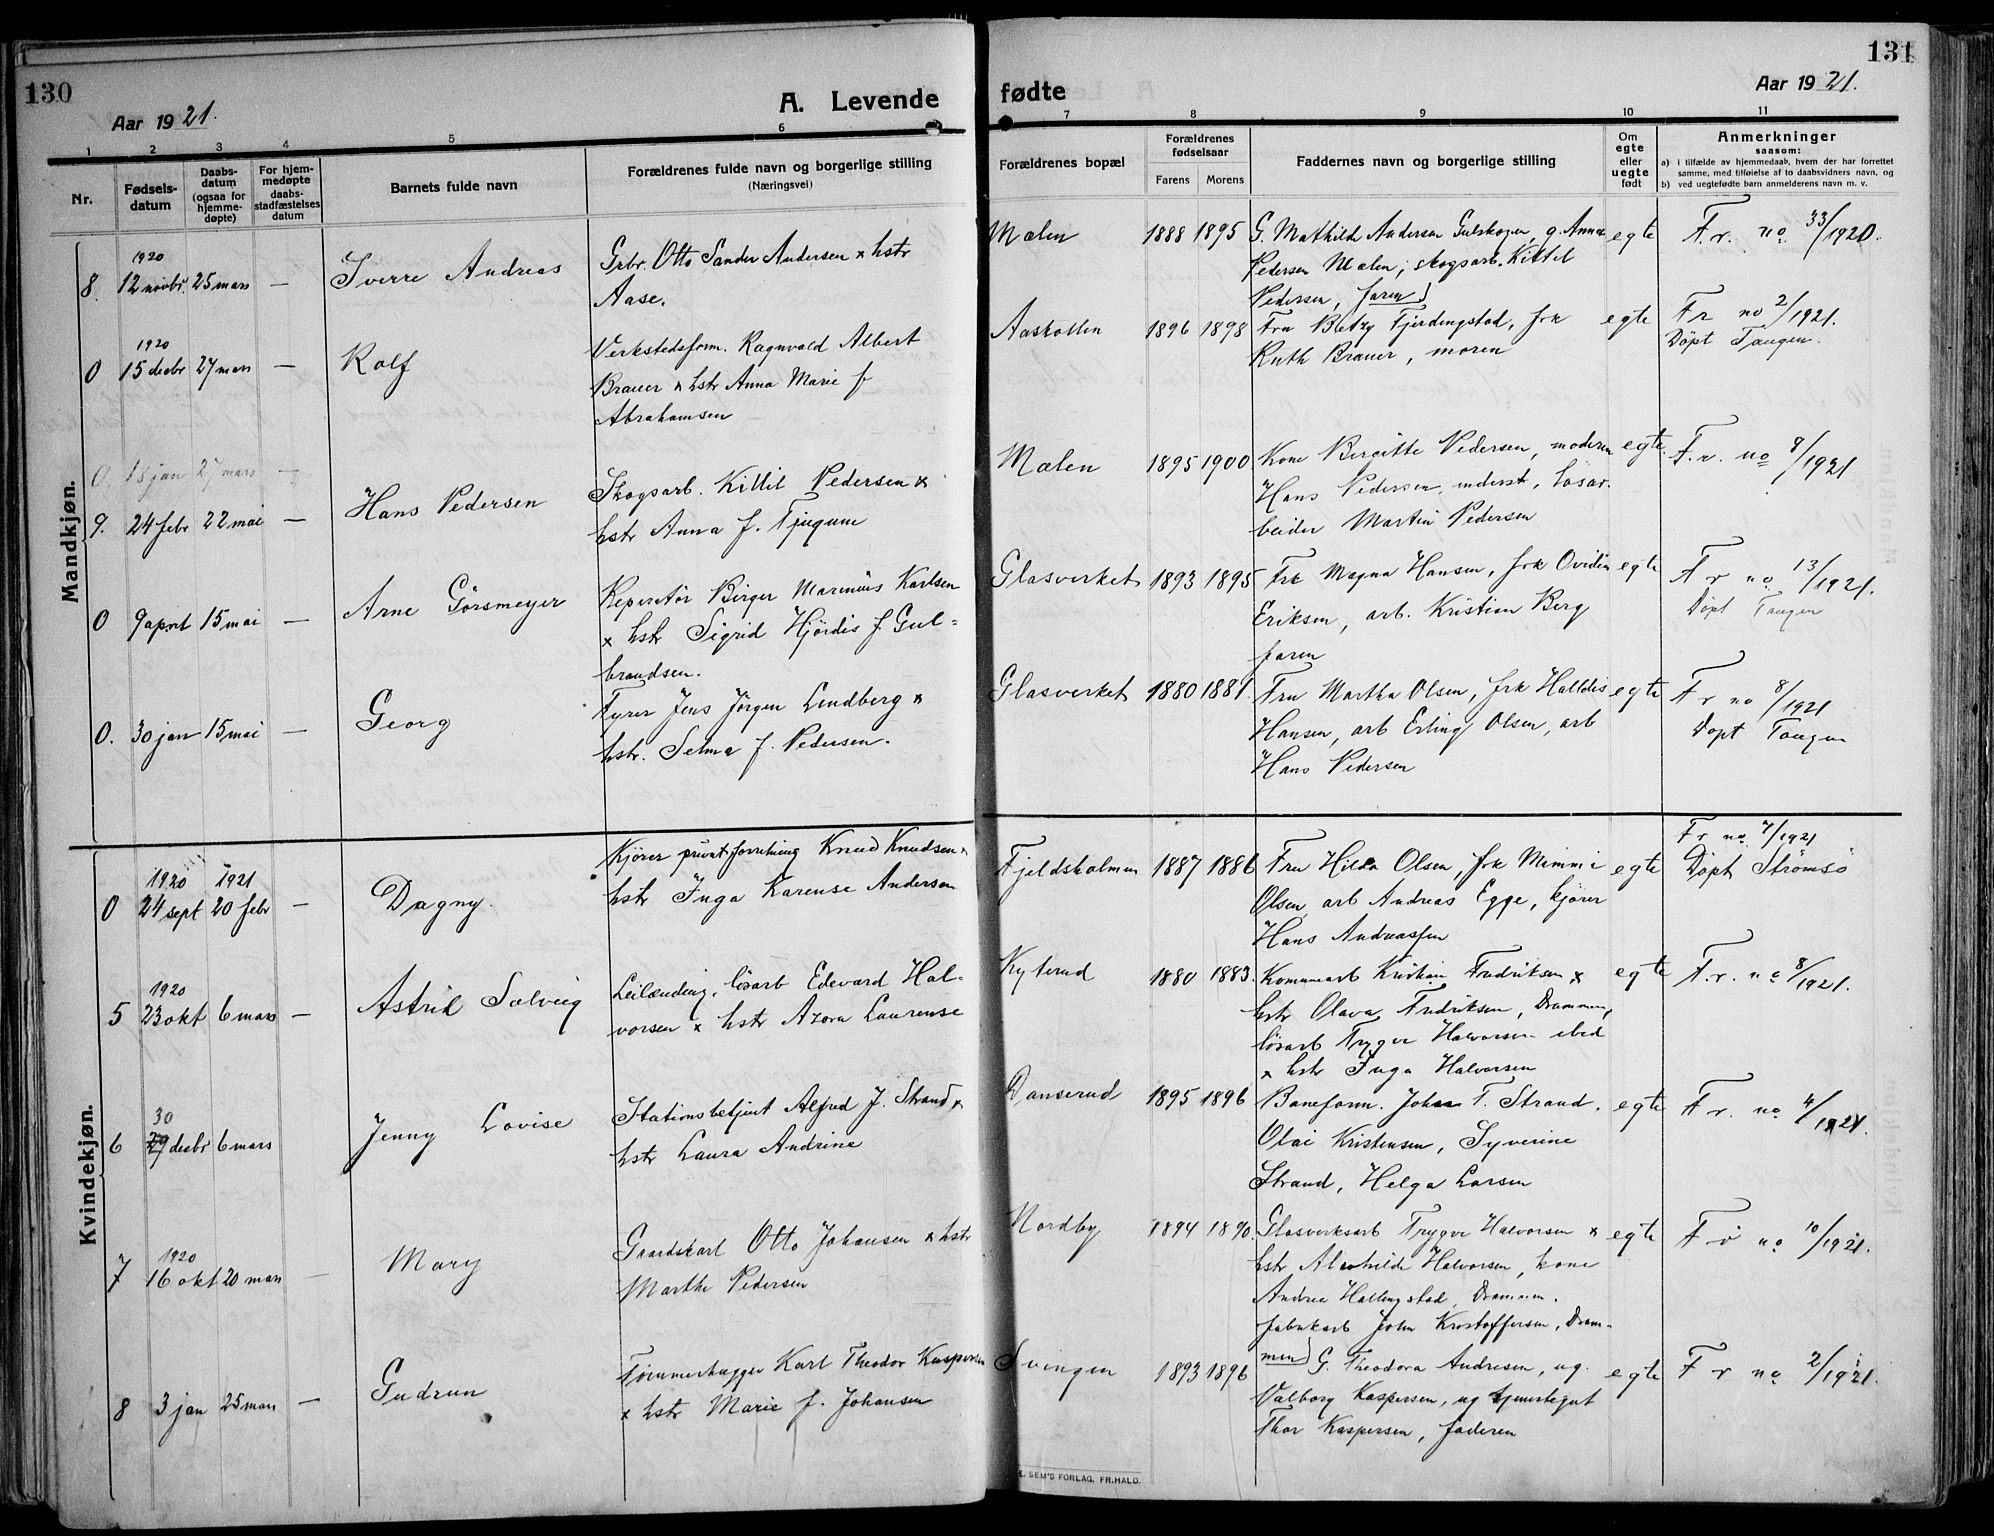 130
Aar 1921.
A. Levende
1 2 3 4 5 6
Nr.
Fødsels-
datum
Daabs-
datum
(ogsaa for
hjemme-
døpte)
For hjem-
medøpte
daabs-
stadfæstelses
datum
Barnets fulde navn
Forældrenes fulde navn og borgerlige stilling
(Næringsvei)
Mandkjøn.
1920
8. 12 novbr. 25 mars —
Sverre Andreas
Grbr. Otto Sander Andersen x hstr
Aase.
1920
0 15 decbr 27 mars —
Rolf
Verkstedsform. Ragnvald Albert
Brauer x hstr Anna Marie f
Abrahamsen
0. 18 jan 27 mars —
9. 24 febr 22 mai —
Hans Pedersen
Skogsarb. Kittil Pedersen x
hstr Anna f. Tjugum
0 9 april 15 mai —
Arne Görsmeyer
Reperatør Birger Marinius Karlsen
x hstr Sigrid Hjördis f Gul=
brandsen.
0. 30 jan 15 mai —
Georg
Fyrer Jens Jörgen Lindberg x
hstr. Selma f. Pedersen.
Kvindekjøn.
1920 1921
0 24 sept 20 febr —
Dagny.
Kjörer privat forretning Knud Knudsen x
hstr Inga Karense Andersen
1920
5 23 okt 6 mars —
Astrid Solveig
Leilænding, lösarb Edevard Hal-
vorsen x hstr Azora Laurense
30
6 29 decbr 6 mars
Jenny Lovise
Stationsbetjent Alfred J. Strand x
hstr Laura Andrine
1920
7 16 okt 20 mars —
Mary
Gaardskarl Otto Johansen x hstr
Marthe Pedersen
8 3 jan 25 mars —
Gudrun
Tømmerhugger Karl Theodor Kaspersen
x hstr Marie f. Johansen
131
Aar 1921.
fødte
7 8 9 10 11
Forældrenes bopæl
Forældrenes
fødselsaar
Farens Morens
Faddernes navn og borgerlige stilling
Om
egte
eller
uegte
født
Anmerkninger
saasom:
a) i tilfælde av hjemmedaab, hvem der har forrettet
samme, med tilføielse af to daabsvidners navn, og
b) ved uegtefødte barn anmelderens navn m. v.
Mælen 1888 1895 G. Mathilde Andersen Gulskogen, g. Anna egte F. r. no 33/1920.
Pedersen Mælen, skogsarb. Kittil
Pedersen, faren
Aaskollen 1896 1898 Fru Betzy Fjerdingstad, frk egte F r no 2/1921.
Ruth Brauer, moren Döpt Tangen.
Mælen 1895 1900 Kone Birgitte Pedersen, moderen egte F. r. no 9/1921
Hans Pedersen, lösar-
beider Martin Pedersen
Glasverket 1893 1895 Frk Magna Hansen, frk Ovidia egte F r no 13/1921.
Eriksen, arb. Kristian Berg Döpt Tangen
faren
Glasverket 1880 1881 Fru Martha Olsen, frk Halldis egte F r no 8/1921
Hansen, arb Erling Olsen, arb Döpt Tangen
Hans Pedersen
F r no 7/1921
Fjeldsholmen 1887 1886 Fru Hilda Olsen, frk Mimmi egte Döpt Strømsö
Olsen, arb Andreas Egge, kjører
Hans Andreassen
Kyterud 1880 1883. Kommarb Kristian Fredriksen x egte F. r. no 8/1921.
hstr Olava Fredriksen, Drammen,
lösarb Trygve Halvorsen ibid
x hstr Inga Halvorsen
Danserud 1895 1896 Baneform. Johan T. Strand. egte F r. no 4/1921.
Olai Kristensen, Syverine
Strand, Helga Larsen
Nordby 1894 1890. Glasverksarb Trygve Halvorsen x egte F r no 10/1921.
hstr Alvhilde Halvorsen, kone
Andrea Hallingstad, Drammen.
fabrikarb John Kristoffersen, Dram-
men
Svingen 1893 1896 G. Theodora Andresen, ug. egte F r no 2/1921.
Valborg Kaspersen, ug tjenestegut
Thor Kaspersen, faderen
E. SEM'S FORLAG, FR.HALD.